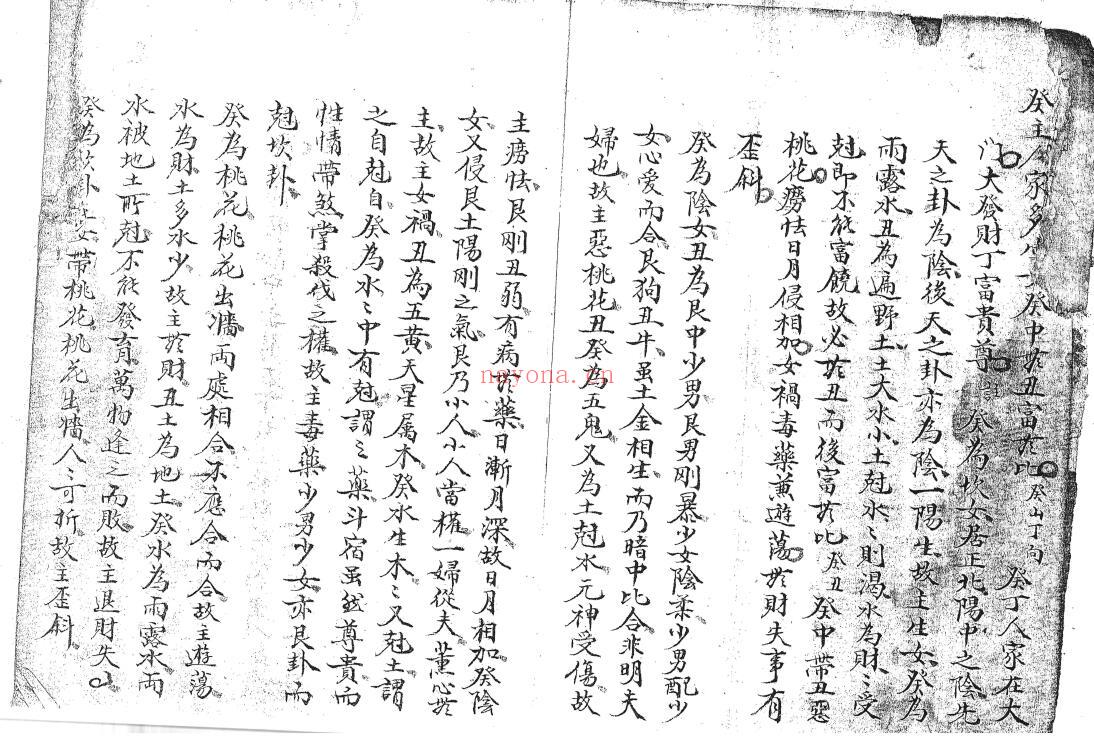 癸主人家多生女癸中於丑富於比 癸山丁向 癸丁人家在大
門大發財丁富貴尊 註 癸為坎女居正北陽中之陰先
天之卦為陰後天之卦亦為陰一陽生故主生女癸為
雨露水丑為遍野土土大水小土尅水〻則渴水為財〻受
尅即不能富饒故必於丑而後富於比 癸丑 癸中帶丑惡
桃花癆怯日月侵相加女禍毒藥蕙遊蕩於財失事有
歪斜
癸為陰女丑為艮中少男艮男剛暴少女陰柔少男配少
女心愛而合艮狗丑牛虽土金相生而乃暗中比合非明夫
婦也故主惡桃花丑癸為五鬼又為土尅水元神受傷故
主癆怯艮剛丑弱有病於藥日漸月深故日月相加癸陰
女又侵艮土陽剛之氣艮乃小人小人當權一婦從夫薰心於
主故主女禍丑為五黃天星属木癸水生木〻又尅土謂
之自尅自癸為水〻中有尅謂〻藥斗宿虽然尊貴而
性情帶煞掌殺伐之權故主毒藥少男少女亦艮卦而
尅坎卦
癸為桃花桃花出墻兩處相合不應合而合故主遊蕩
水為財土多水少故主於財丑土為地土癸水為雨露水雨
水被地土所尅不能發育萬物逢之而敗故主退財失
癸為坎卦女帶桃花桃花出墻人〻可折故主歪斜
nayona.cn